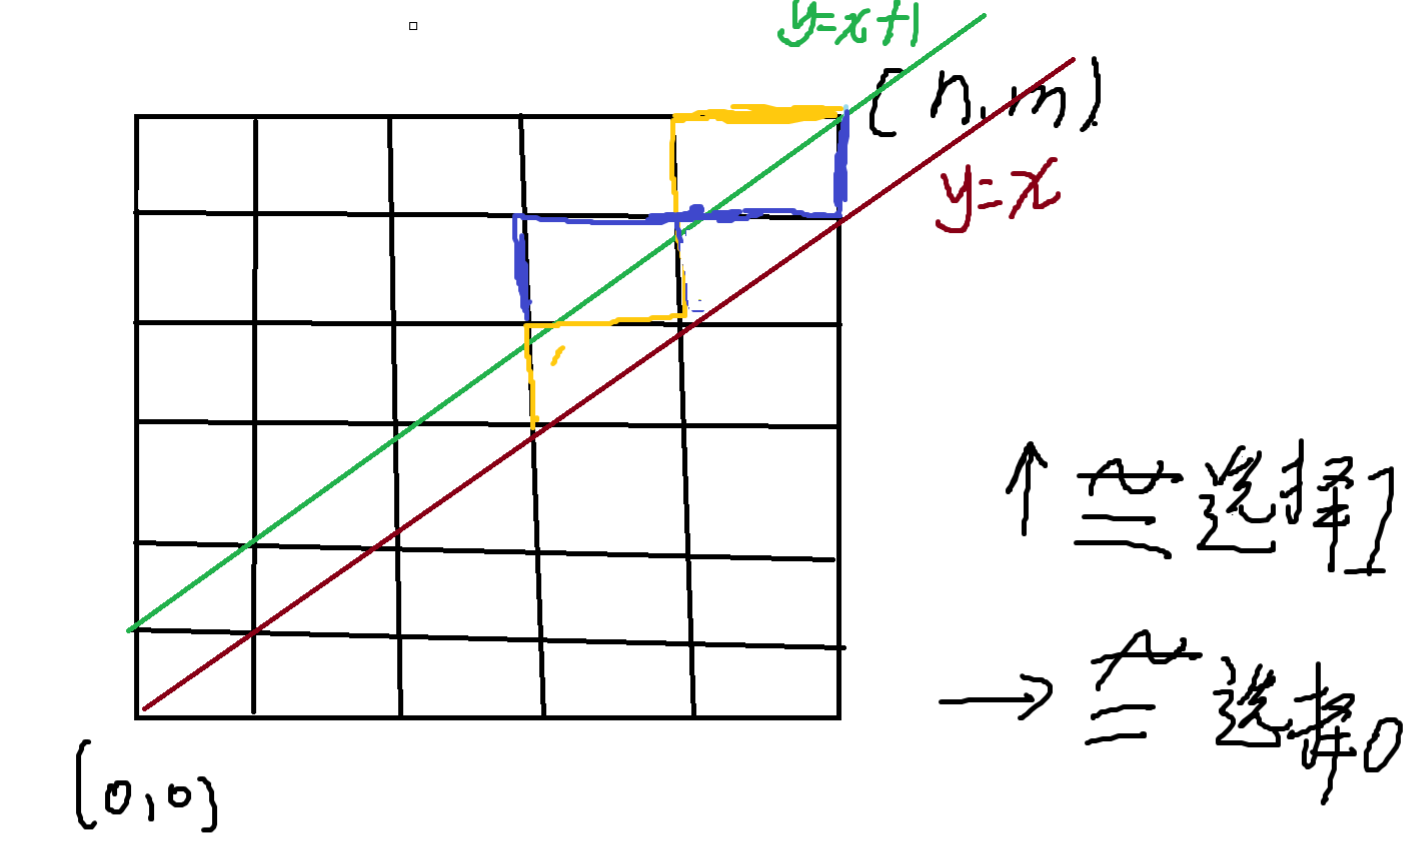 y=x+1
(n,m)
y=x
↑ 选择1
→ 选择0
(0,0)